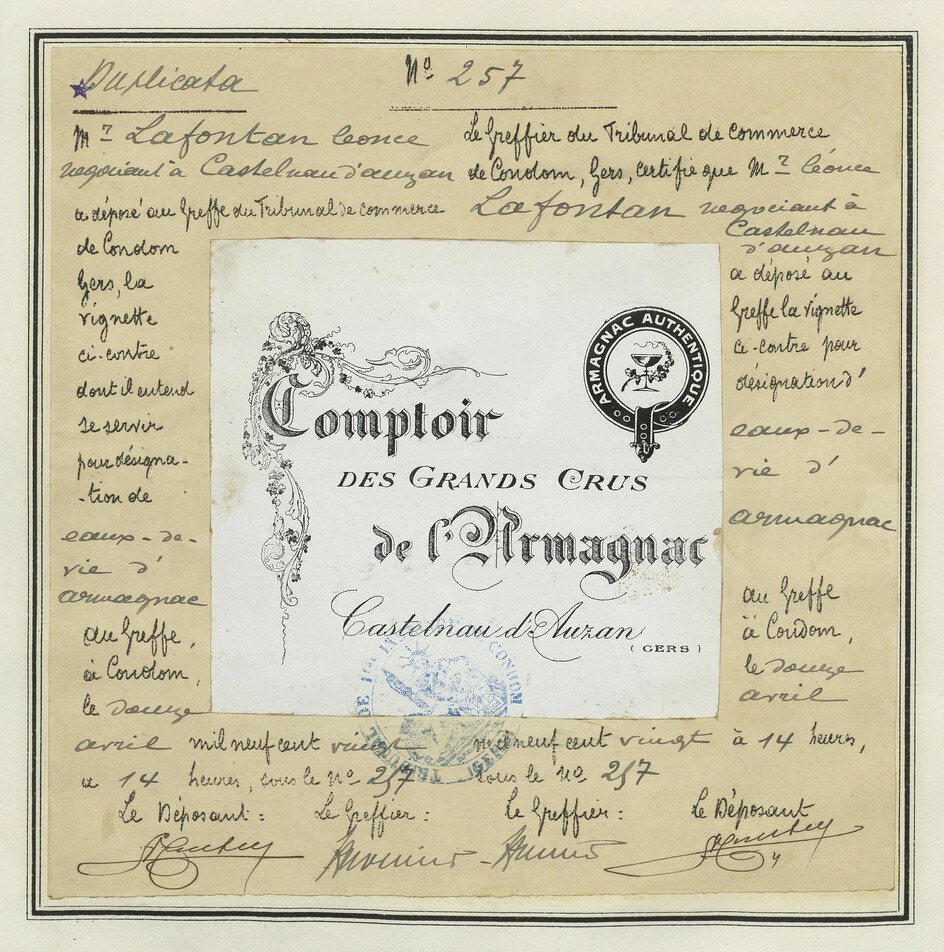 Duplicata
Nº 257
Mr Lafontan Léonce
négociant à Castelnau d'auzan
a déposé au Greffe du Tribunal de commerce
de Condom
Gers, la
vignette
ci-contre
dont il entend
se servir
pour désigna-
-tion de
eaux-de-
vie d'
armagnac
au Greffe,
à Condom,
le douze
avril mil neuf cent vingt
a 14 heures, sous le nº 257
Le Déposant :
Le Greffier :
Le Greffier du Tribunal de Commerce
de Condom, Gers, certifie que Mr Léonce
Lafontan négociant à
Castelnau
d'auzan
a déposé au
Greffe la vignette
ci-contre pour
désignation d'
eaux-de-
vie d'
armagnac
au Greffe
à Condom,
le douze
avril
mil neuf cent vingt à 14 heures,
sous le nº 257
Le Greffier :
Le Déposant
ARMAGNAC AUTHENTIQUE
Comptoir
DES GRANDS CRUS
de l'Armagnac
Castelnau d'Auzan
(GERS)
CONDOM